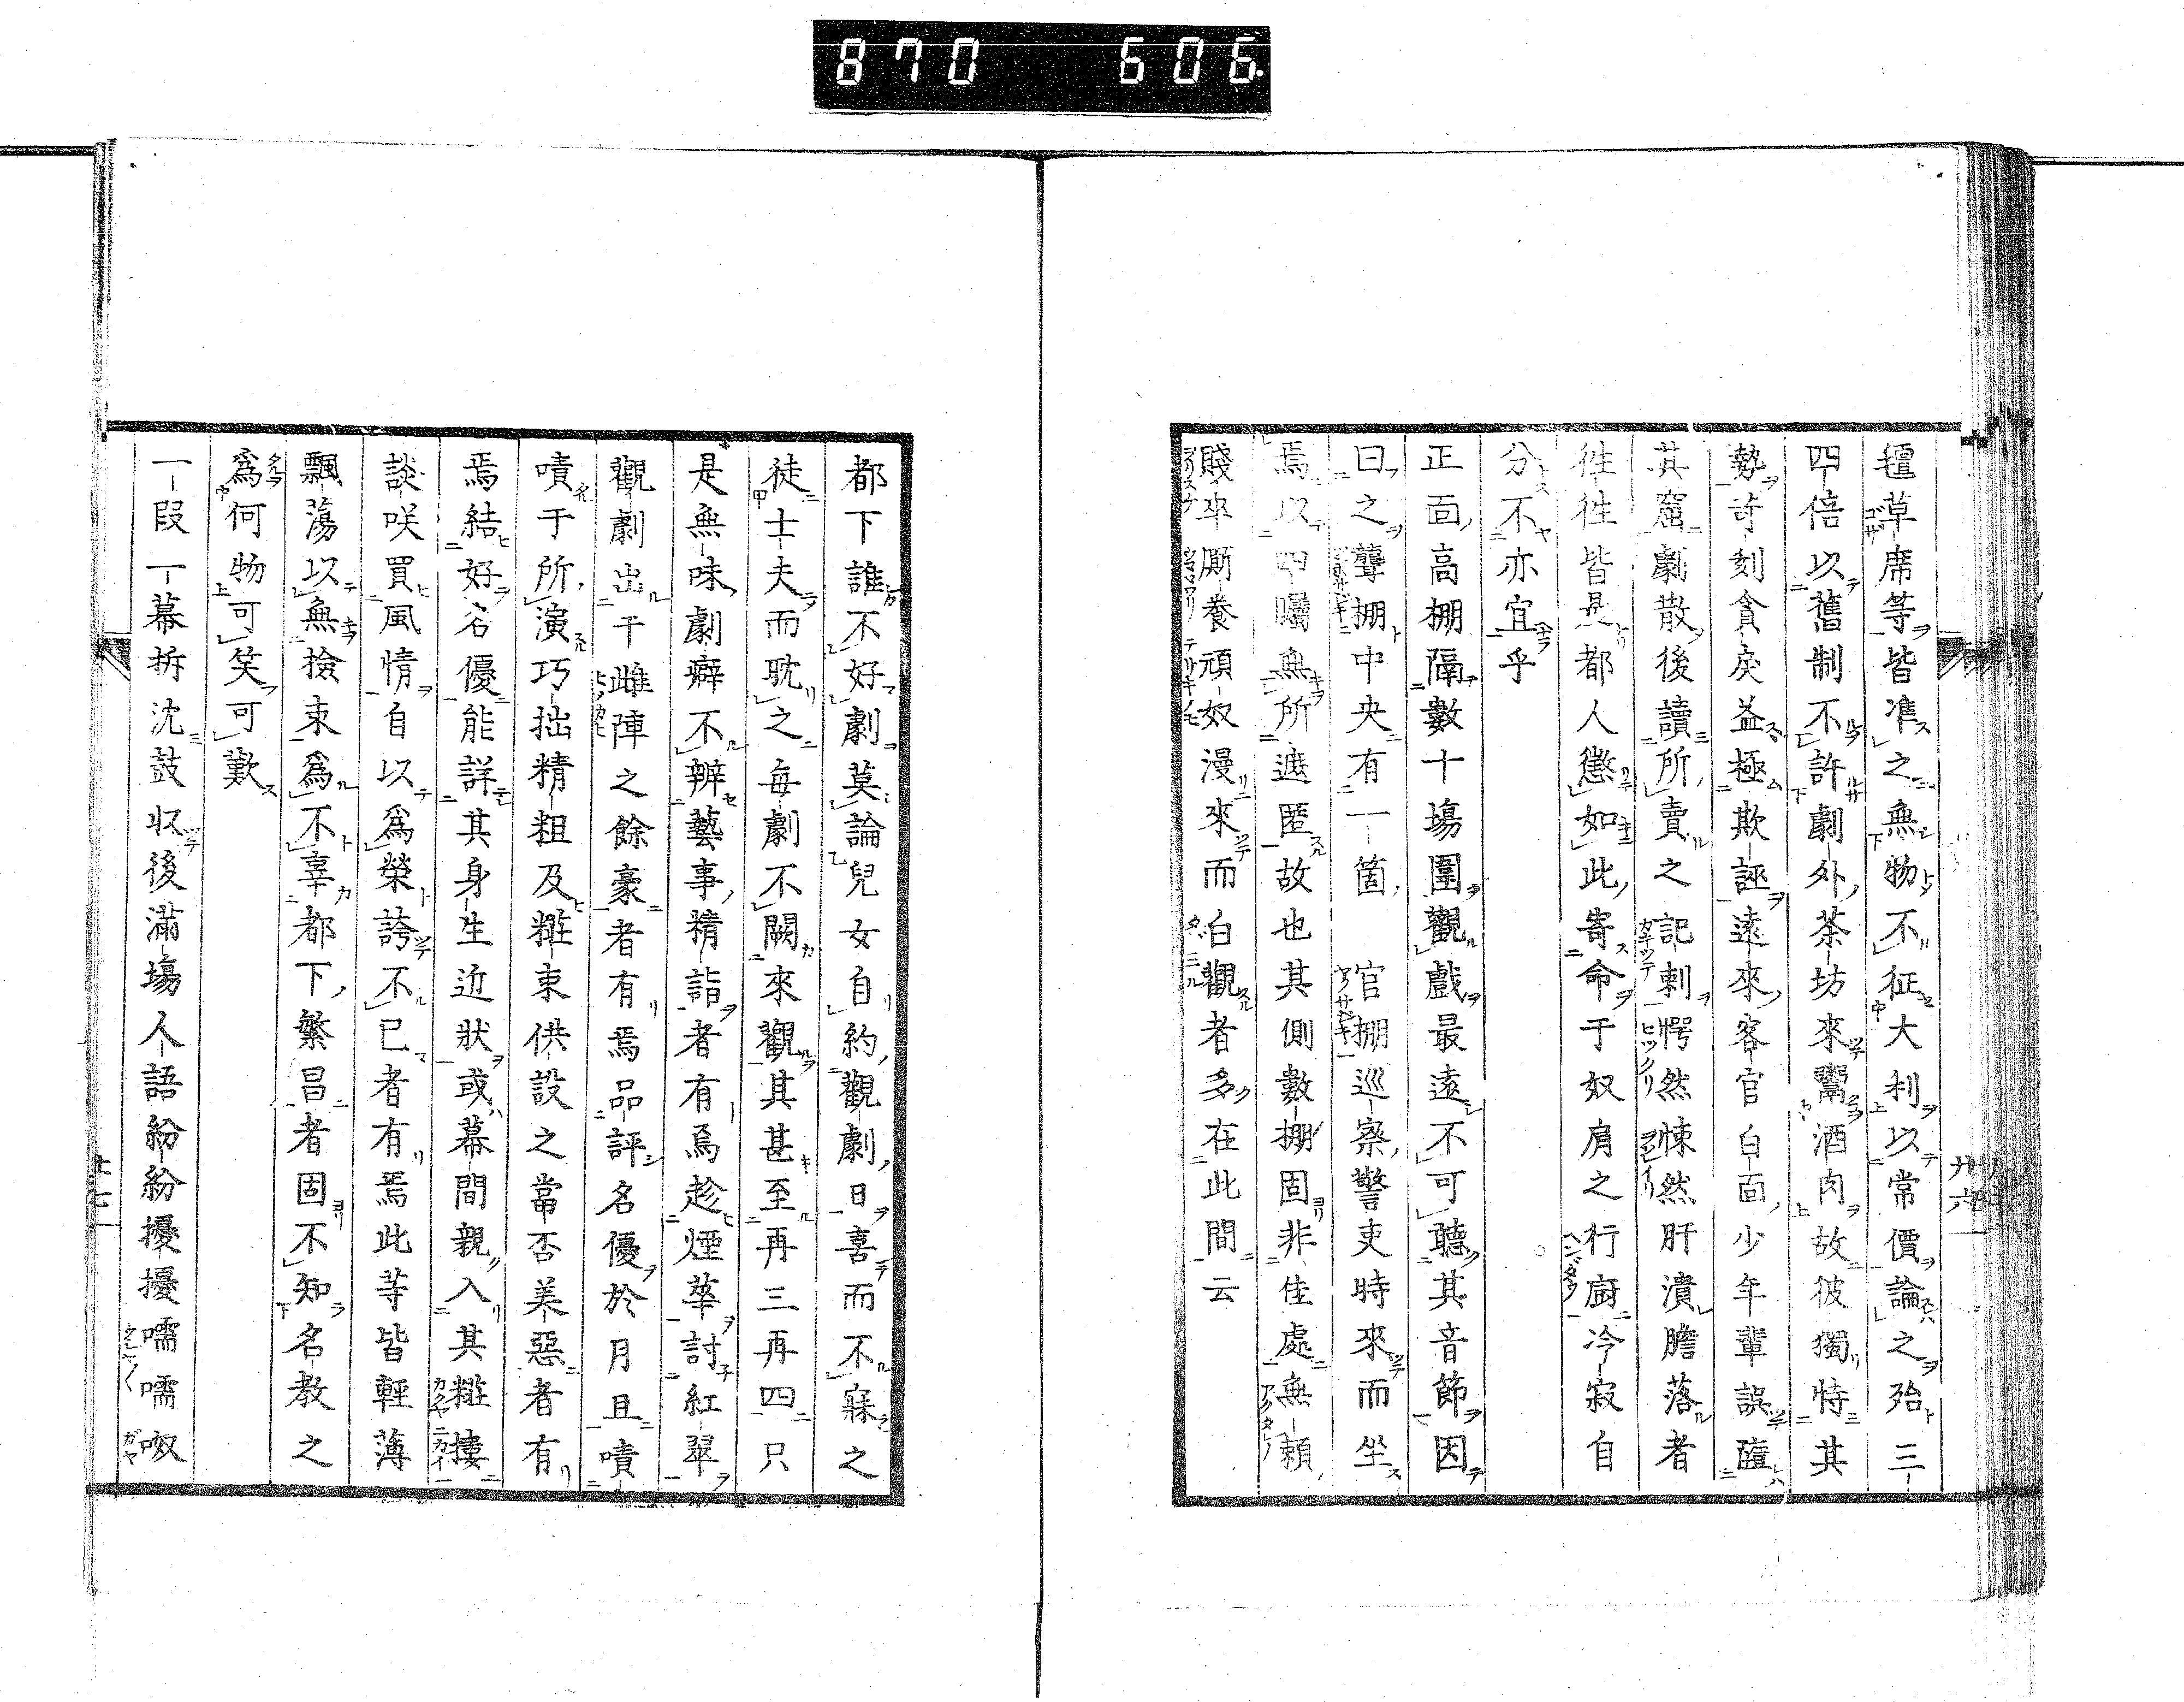 870 606
氊草席等皆準之無物不征大利以常價論之殆三
四倍以舊制不許劇外茶坊來鬻酒肉故彼獨恃其
勢苛刻貪戻益極欺誣遠來客官白面少年輩誤
其窟劇散後讀所賣之記刺愕然悚然肝潰膽落者
徃徃皆是都人懲如此寄命于奴肩之行廚冷寂自
分不亦宜乎
正面高棚隔數十場圍觀戲最遠不可聽其音節因
曰之聾棚中央有一箇官棚巡察警吏時來而坐
焉以四矚無所遮匿故也其側數棚固非佳處無頼
賤卒廝養頑奴漫來而白觀者多在此間云
都下誰不好劇莫論兒女自約觀劇日喜而不寐之
徒士夫而耽之每劇不闕來觀其甚至再三再四只
是無味劇癖不辨藝事精詣者有焉趁煙華討紅翠
觀劇出于雌陣之餘豪者有焉品評名優於月且嘖
嘖于所演巧拙精粗及糚束供設之當否美惡者有
焉結好名優能詳其身生近狀或幕間親入其糚樓
談咲買風情自以爲榮誇不已者有焉此等皆輕薄
飄蕩以無撿束爲不辜都下繁昌者固不知名教之
爲何物可笑可歎
一段一幕拆沈鼓収後滿場人語紛紛擾擾嚅嚅呶